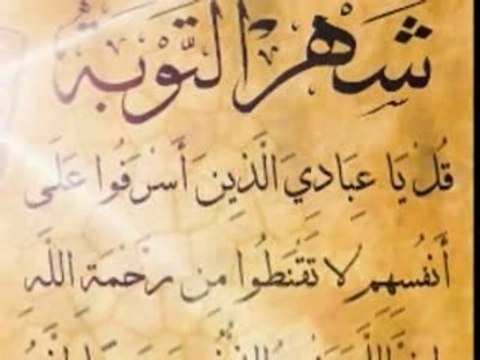 شَهْرُ التَّوْبَة
قُلْ يَا عِبَادِيَ الَّذِينَ أَسْرَفُوا عَلَى
أَنْفُسِهِم لَا تَقْنَطُوا مِن رَحْمَةِ اللَّهِ